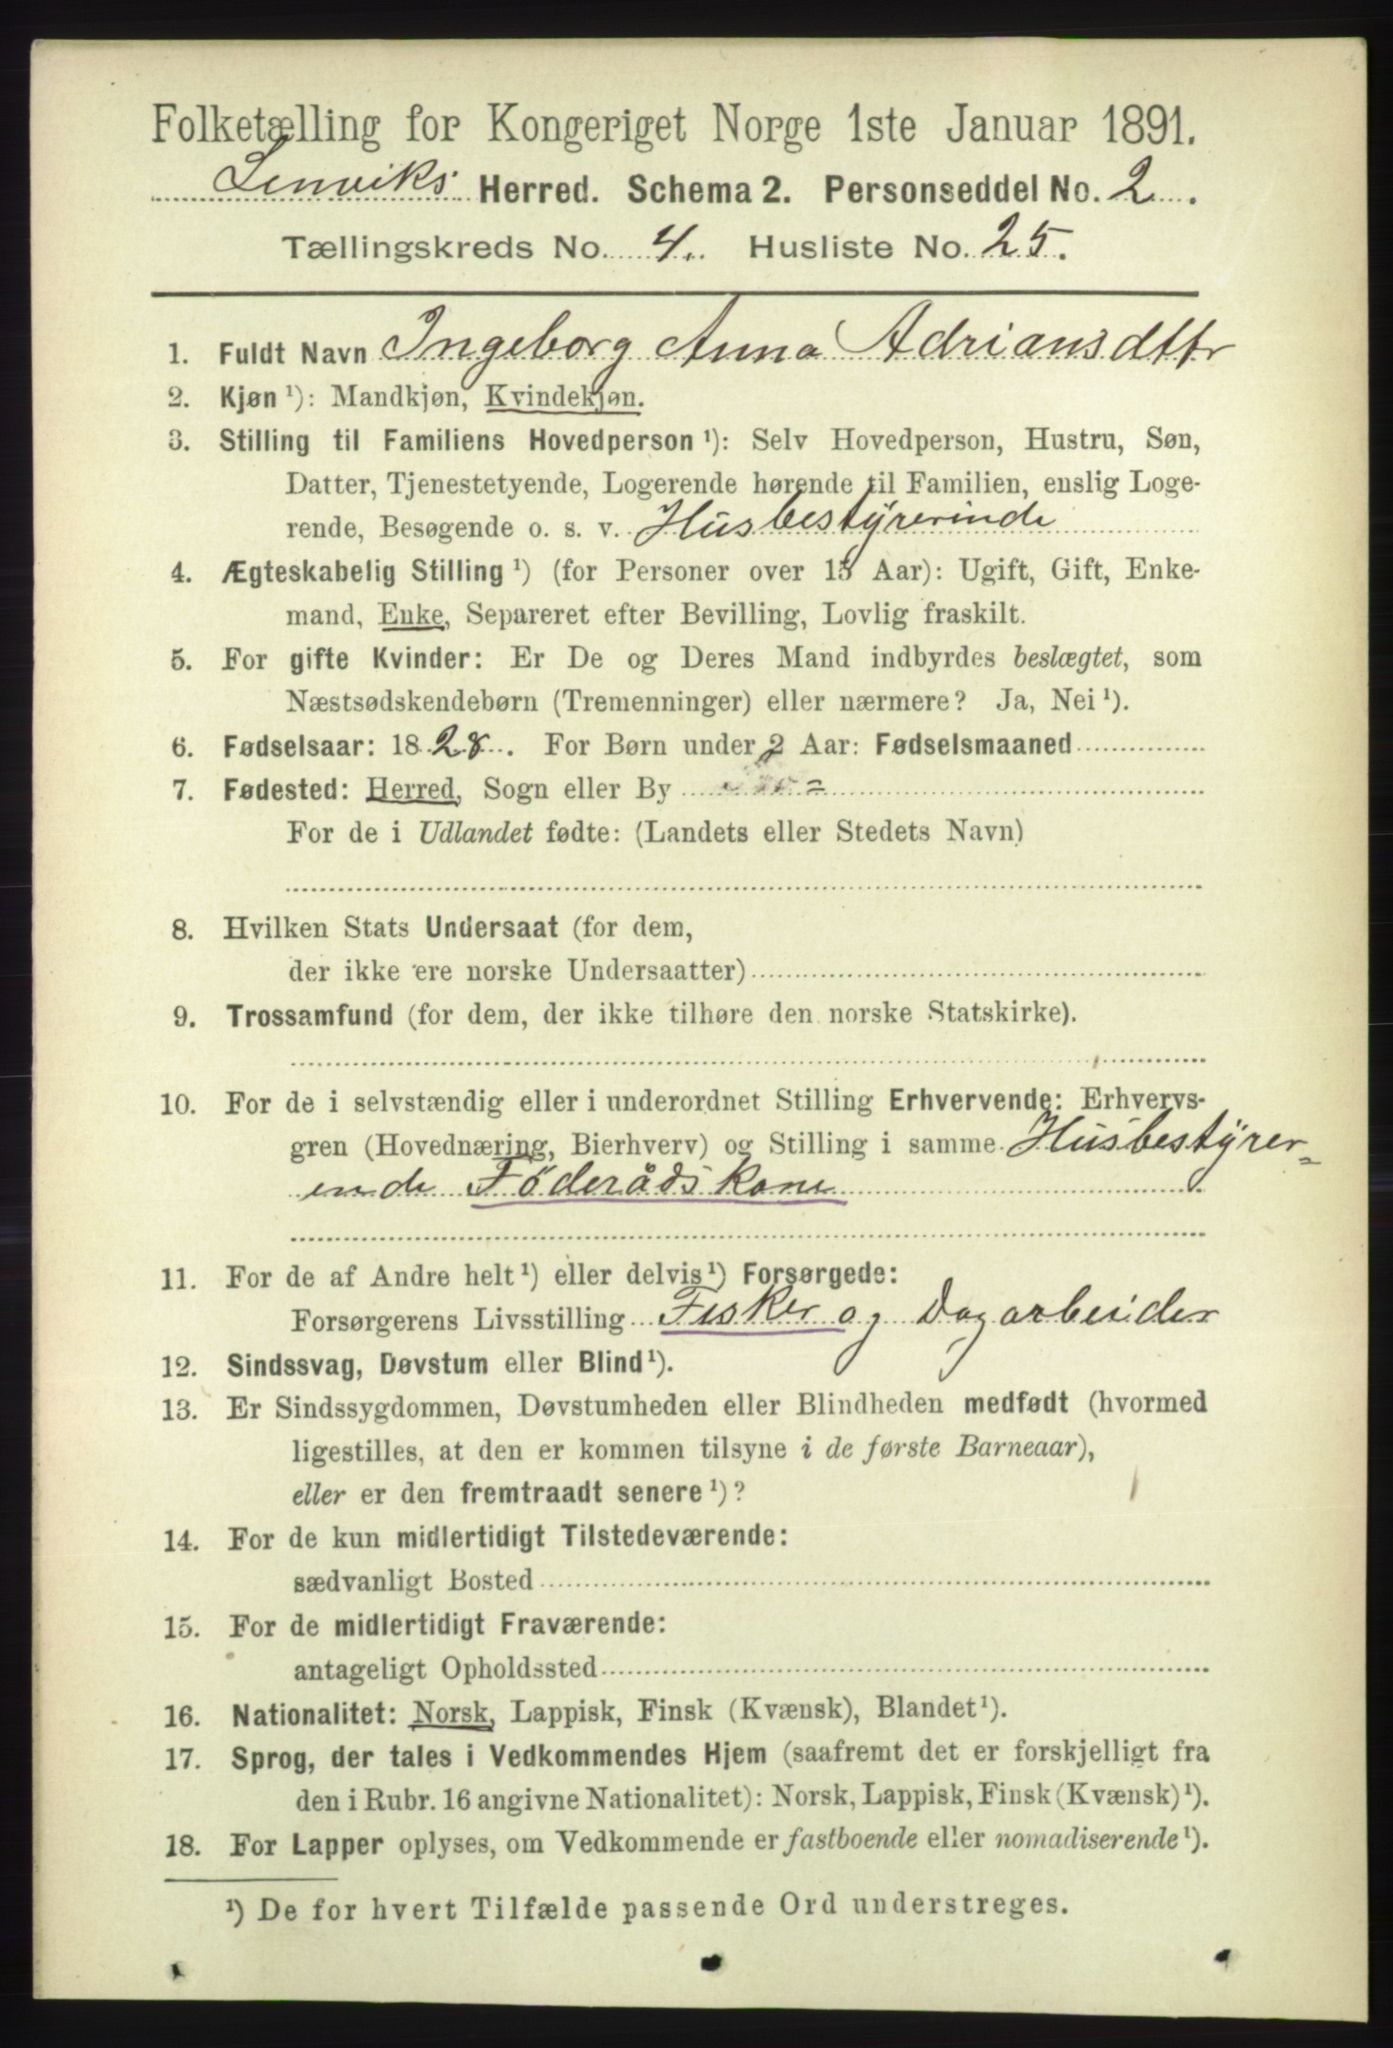 Folketælling for Kongeriget Norge 1ste Januar 1891.
Lenviks Herred. Schema 2. Personseddel No. 2.
Tællingskreds No. 4. Husliste No. 25.
1. Fuldt Navn Ingeborg Anna Adriansdttr
2. Kjøn ¹): Mandkjøn, Kvindekjøn.
3. Stilling til Familiens Hovedperson ¹): Selv Hovedperson, Hustru, Søn,
Datter, Tjenestetyende, Logerende hørende til Familien, enslig Loge-
rende, Besøgende o. s. v. Husbestyrerinde
4. Ægteskabelig Stilling ¹) (for Personer over 15 Aar): Ugift, Gift, Enke-
mand, Enke, Separeret efter Bevilling, Lovlig fraskilt.
5. For gifte Kvinder: Er De og Deres Mand indbyrdes beslægtet, som
Næstsødskendebørn (Tremenninger) eller nærmere? Ja, Nei ¹).
6. Fødselsaar: 1828. For Børn under 2 Aar: Fødselsmaaned
7. Fødested: Herred, Sogn eller By
For de i Udlandet fødte: (Landets eller Stedets Navn)
8. Hvilken Stats Undersaat (for dem,
der ikke ere norske Undersaatter)
9. Trossamfund (for dem, der ikke tilhøre den norske Statskirke).
10. For de i selvstændig eller i underordnet Stilling Erhvervende: Erhvervs-
gren (Hovednæring, Bierhverv) og Stilling i samme Husbestyrer-
ende Föderådskone
11. For de af Andre helt ¹) eller delvis ¹) Forsørgede:
Forsørgerens Livsstilling Fisker og Dagarbeider
12. Sindssvag, Døvstum eller Blind ¹).
13. Er Sindssygdommen, Døvstumheden eller Blindheden medfødt (hvormed
ligestilles, at den er kommen tilsyne i de første Barneaar),
eller er den fremtraadt senere ¹)?
14. For de kun midlertidigt Tilstedeværende:
sædvanligt Bosted
15. For de midlertidigt Fraværende:
antageligt Opholdssted
16. Nationalitet: Norsk, Lappisk, Finsk (Kvænsk), Blandet ¹).
17. Sprog, der tales i Vedkommendes Hjem (saafremt det er forskjelligt fra
den i Rubr. 16 angivne Nationalitet): Norsk, Lappisk, Finsk (Kvænsk) ¹).
18. For Lapper oplyses, om Vedkommende er fastboende eller nomadiserende ¹).
¹) De for hvert Tilfælde passende Ord understreges.